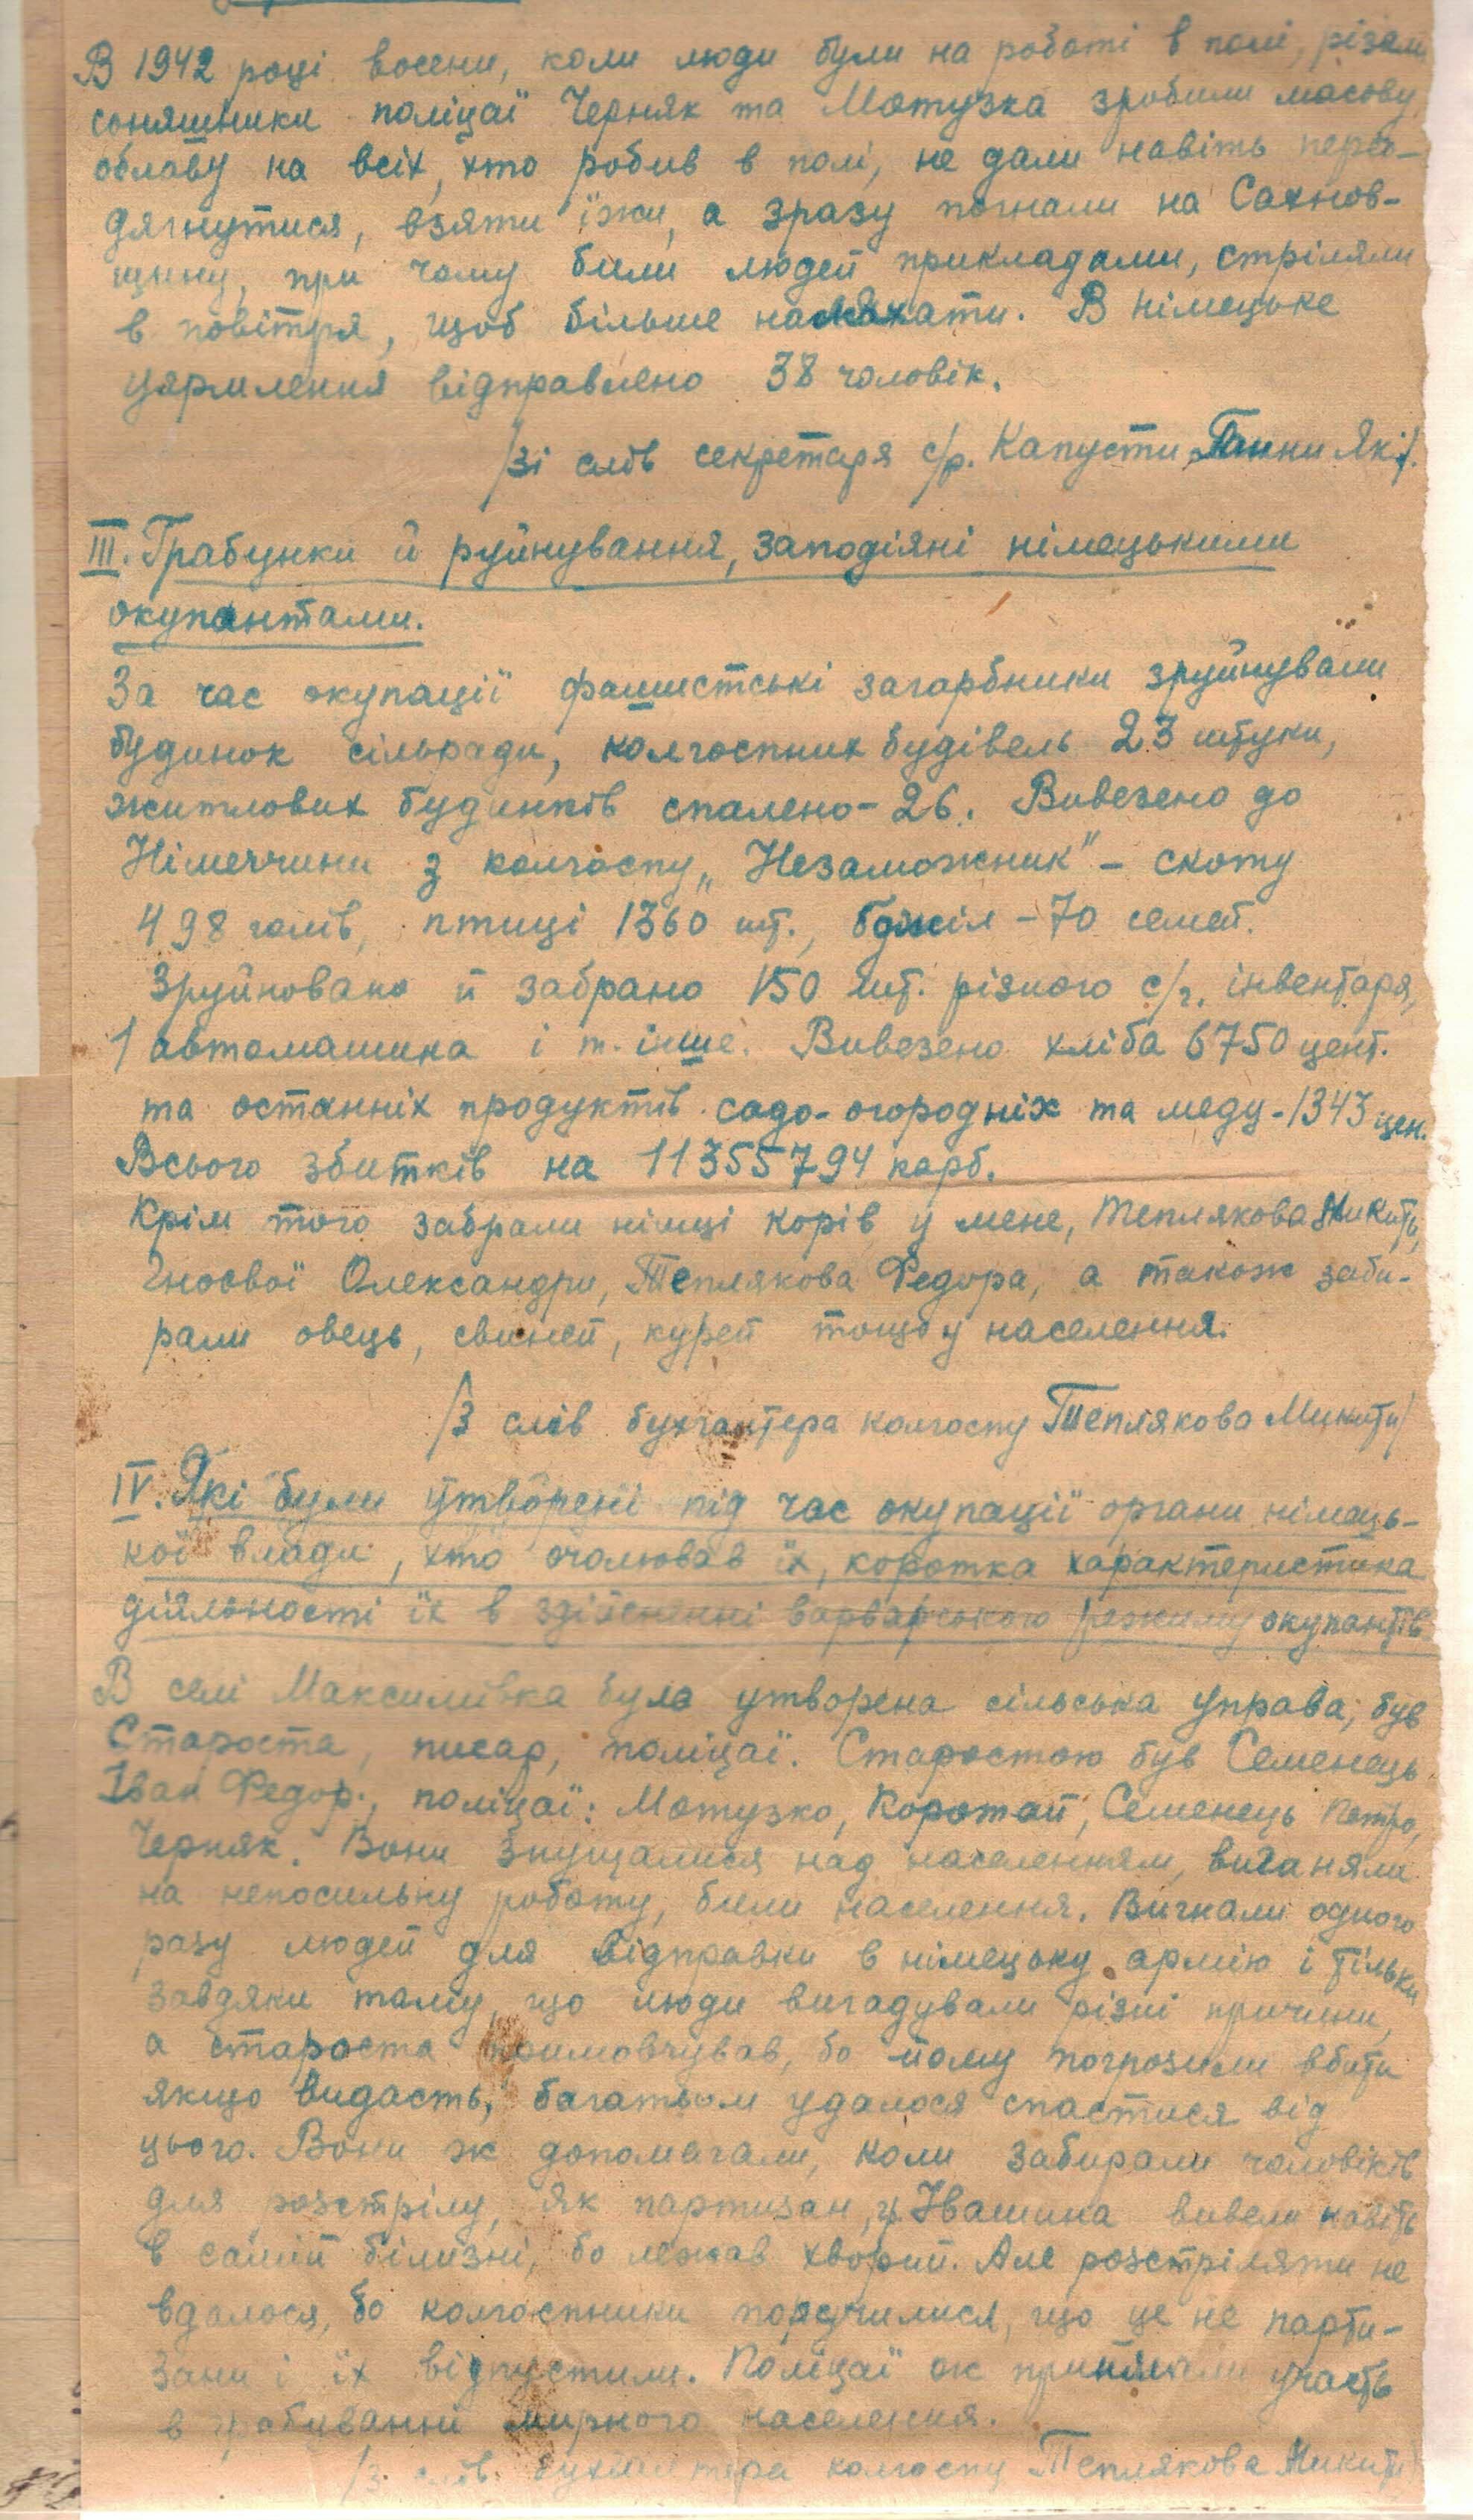 В 1942 році восени, коли люди були на роботі в полі, різали
соняшники поліцаї Черняк та Мотузка зробили масову
облаву на всіх, хто робив в полі, не дали навіть перео-
дягнутися, взяти їжи, а зразу погнали на Сахнов-
щину, при чому били людей прикладами, стріляли
в повітря, щоб більше налякати. В німецьке
уярмлення відправлено 38 чоловік.
/зі слів секретаря с/р. Капусти Ганни Як./.
III. Грабунки й руйнування, заподіяні німецькими
окупантами.
За час окупації фашистські загарбники зруйнували
будинок сільради, колгоспних будівель 23 штуки,
житлових будинків спалено - 26. Вивезено до
Німеччини з колгоспу „Незаможник" - скоту
498 голів, птиці 1360 шт., бджіл - 70 семей.
Зруйновано й забрано 150 шт. різного с/г. інвентаря,
1 автомашина і т. інше. Вивезено хліба 6750 цент.
та останніх продуктів садо-огородніх та меду - 1343 цен.
Всього збитків на 11355794 карб.
Крім того забрали німці корів у мене, Теплякова Микити,
Гноєвої Олександри, Теплякова Федора, а також заби-
рали овець, свиней, курей тощо у населення.
/З слів бухгалтера колгоспу Теплякова Микити/
IV. Які були утворені під час окупації органи німець-
кої влади, хто очолював їх, коротка характеристика
діяльності їх в здійсненні варварського режиму окупантів.
В селі Максимівка була утворена сільська управа, був
Староста, писар, поліцаї. Старостою був Семенець
Іван Федор., поліцаї: Мотузко, Коротай, Семенець Петро,
Черняк. Вони знущалися над населенням, виганяли
на непосильну роботу, били населення. Вигнали одного
разу людей для відправки в німецьку армію і тільки
завдяки тому, що люди вигадували різні причини,
а староста примовчував, бо йому погрозили вбити
якщо видасть, багатьом удалося спастися від
цього. Вони ж допомагали, коли забирали чоловіків
для розстрілу, як партизан, Івашина вивели навіть
в самій білизні, бо лежав хворий. Але розстріляти не
вдалося, бо колгоспники поручилися, що це не парти-
зани і їх відпустили. Поліцаї ж приймали участь
в грабуванні мирного населення.
/З слів бухгалтера колгоспу Теплякова Микити/